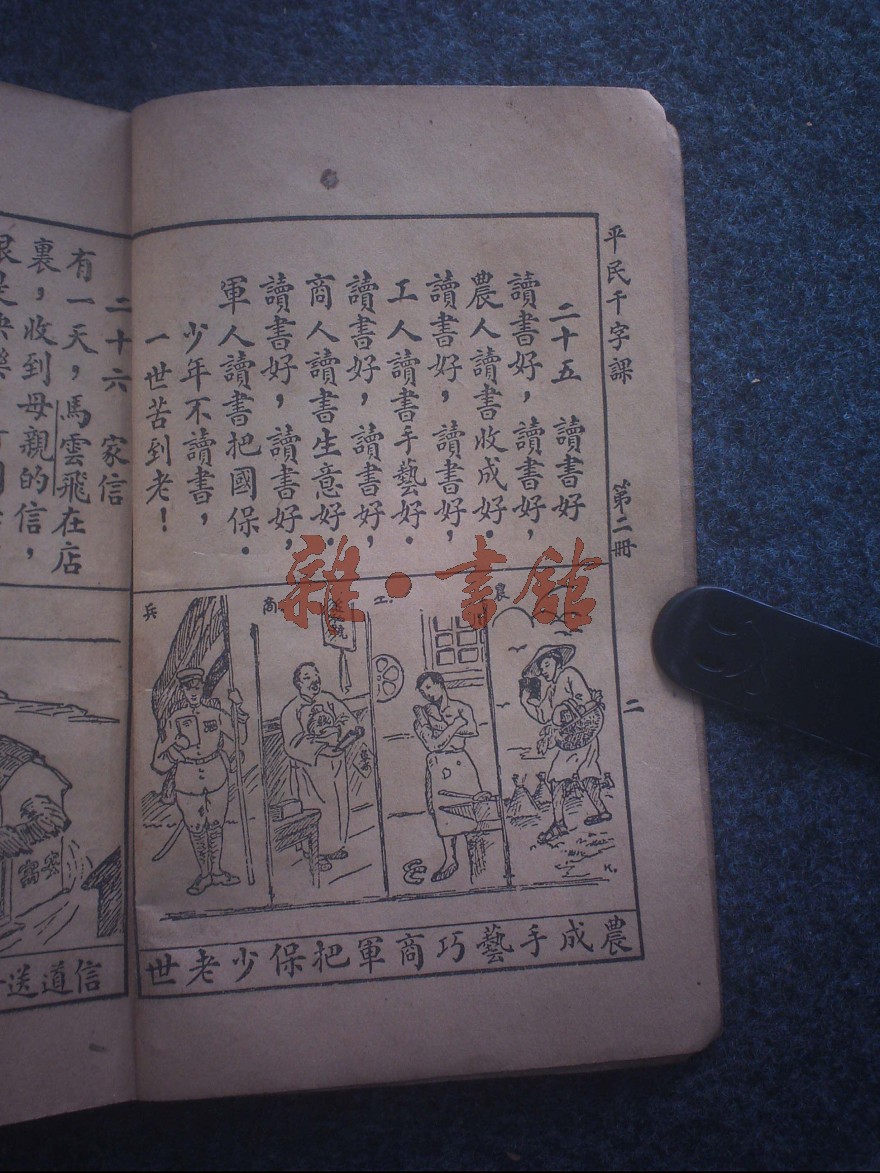 平民千字課 第二冊 二
二十五 讀書好
讀書好,讀書好,
農人讀書收成好.
讀書好,讀書好,
工人讀書手藝好.
讀書好,讀書好,
商人讀書生意好.
讀書好,讀書好,
軍人讀書把國保.
少年不讀書,
一世苦到老!
農
工
商
兵
K.
農成手藝巧商軍把保少老世
二十六 家信
有一天,馬雲飛在店
裏,收到母親的信,
信道送
雜·書館